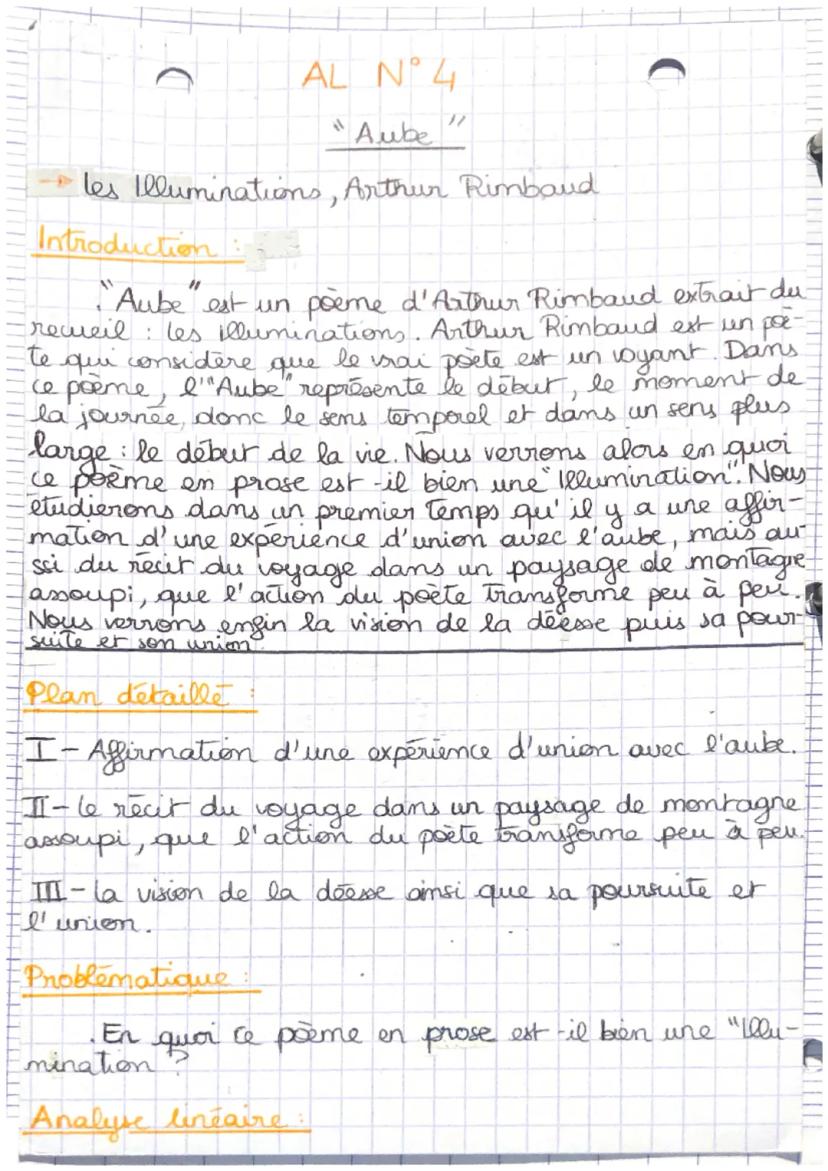 AL N°4
"Aube"
→ Les Illuminations, Arthur Rimbaud
Introduction :
. "Aube" est un poème d'Arthur Rimbaud extrait du
recueil : les illuminations. Arthur Rimbaud est un poè-
te qui considère que le vrai poète est un voyant. Dans
ce poème, l'"Aube" représente le début, le moment de
la journée, donc le sens temporel et dans un sens plus
large : le début de la vie. Nous verrons alors en quoi
ce poème en prose est-il bien une "Illumination". Nous
étudierons dans un premier temps qu'il y a une affir-
mation d'une expérience d'union avec l'aube, mais au-
ssi du récit du voyage dans un paysage de montagne
assoupi, que l'action du poète transforme peu à peu.
Nous verrons enfin la vision de la déesse puis sa pour-
suite et son union.
Plan détaillé :
I - Affirmation d'une expérience d'union avec l'aube.
II - Le récit du voyage dans un paysage de montagne
assoupi, que l'action du poète transforme peu à peu.
III - La vision de la déesse ainsi que sa poursuite et
l'union.
Problématique :
. En quoi ce poème en prose est-il bien une "Illu-
mination ?
Analyse linéaire :